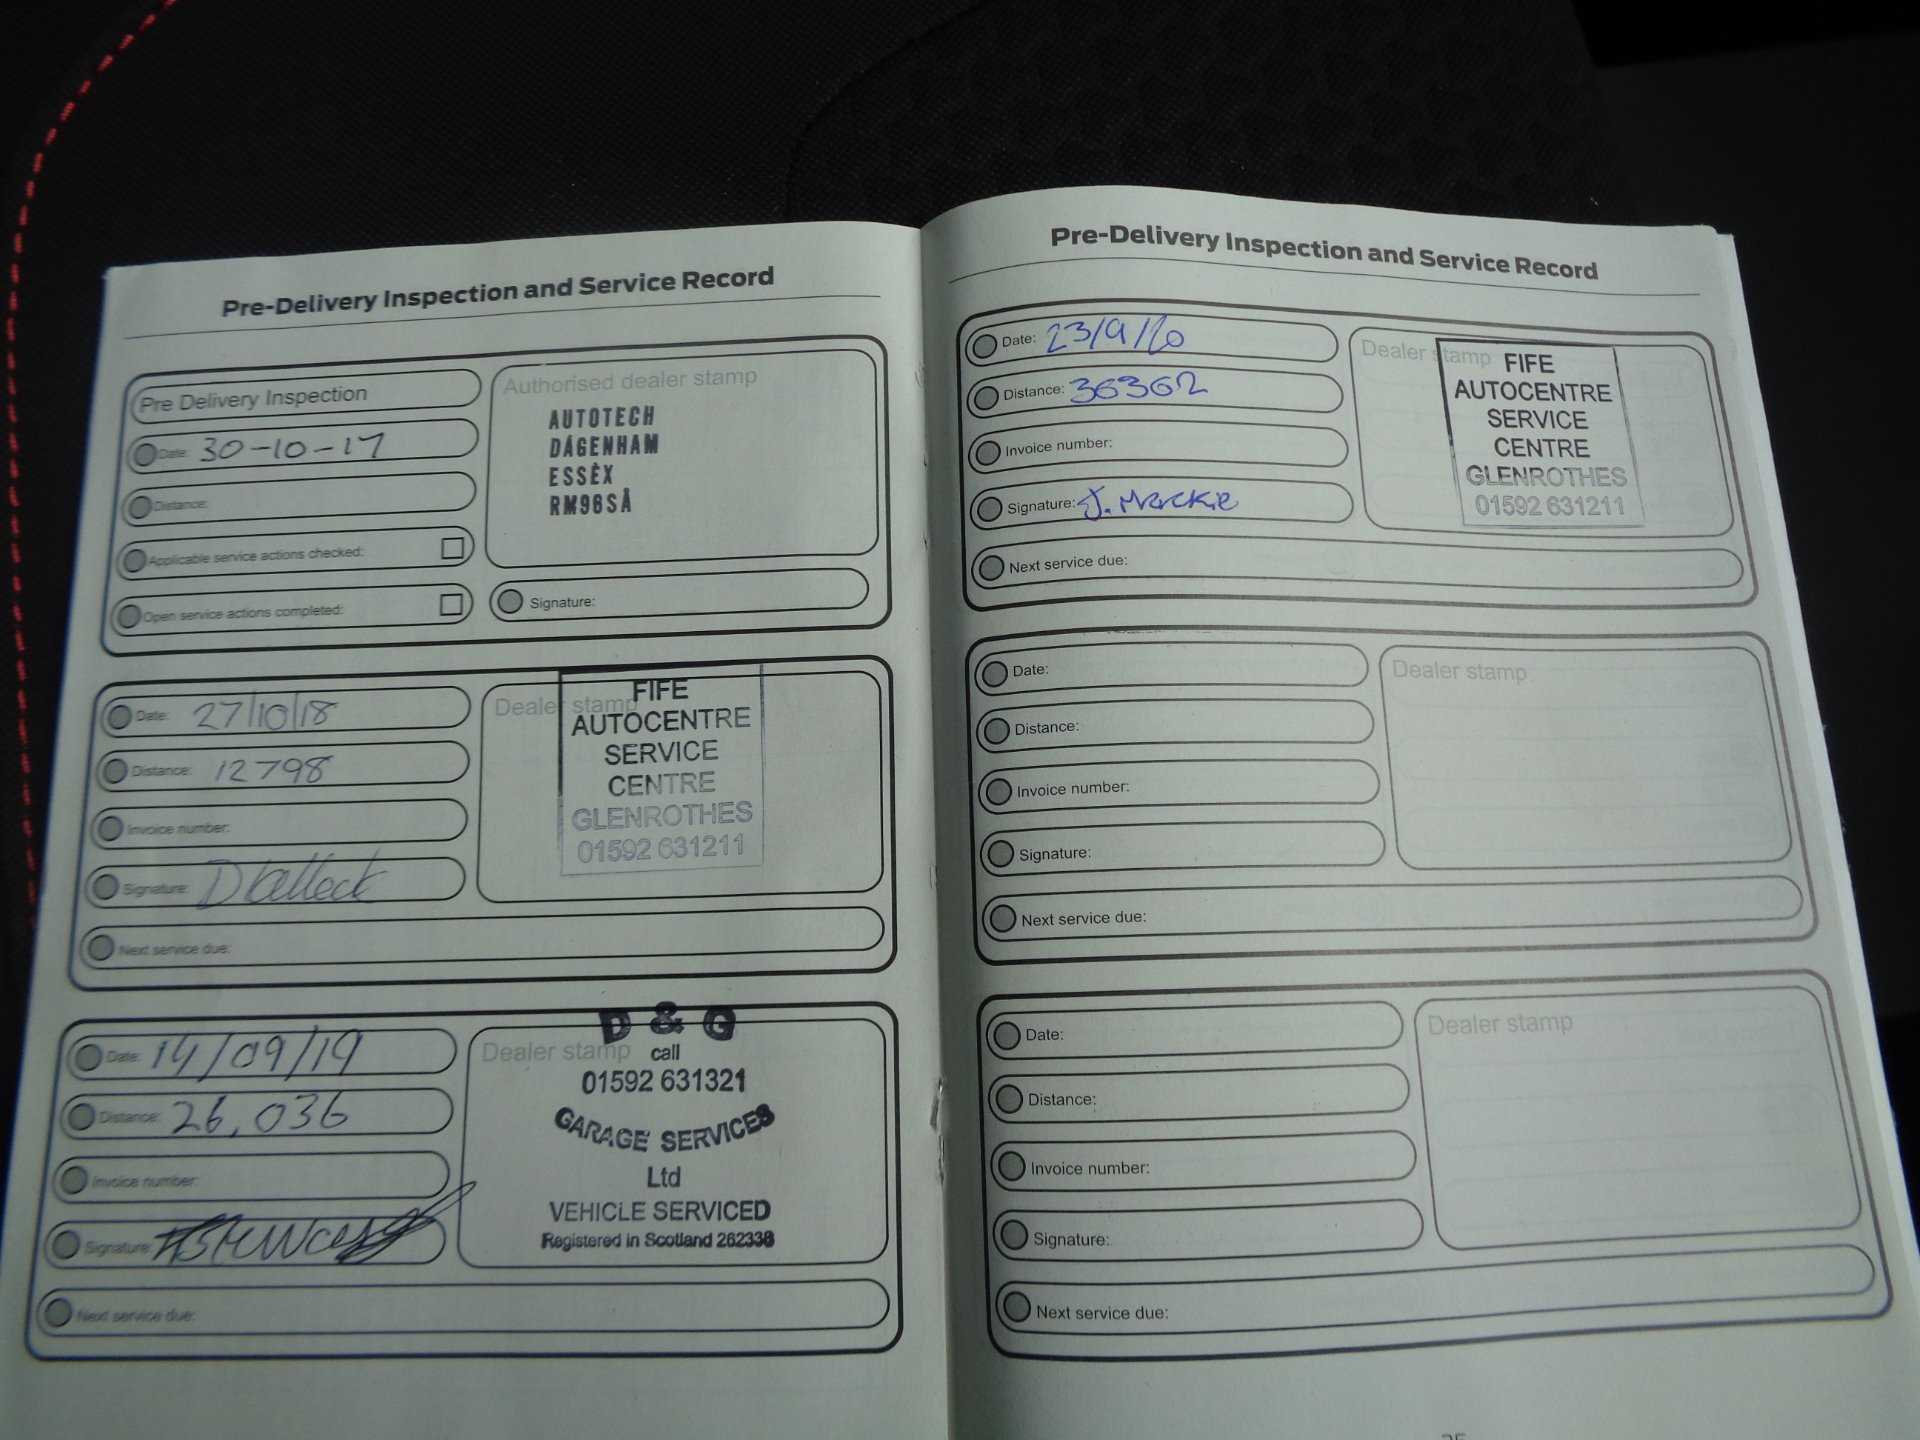 Pre-Delivery Inspection and Service Record
Pre Delivery Inspection
Date: 30-10-17
Distance:
Applicable service actions checked:
Open service actions completed:
Authorised dealer stamp
AUTOTECH
DAGENHAM
ESSEX
RM96SA
Signature:
Date: 27/10/18
Distance: 12798
Invoice number:
Signature:
Next service due:
Dealer stamp
FIFE
AUTOCENTRE
SERVICE
CENTRE
GLENROTHES
01592 631211
Date: 14/09/19
Distance: 26,036
Invoice number:
Signature:
Next service due:
Dealer stamp
D & G
call
01592 631321
GARAGE SERVICES
Ltd
VEHICLE SERVICED
Registered in Scotland 262338
Pre-Delivery Inspection and Service Record
Date: 23/9/20
Distance: 36362
Invoice number:
Signature: J. Mackie
Next service due:
Dealer stamp
FIFE
AUTOCENTRE
SERVICE
CENTRE
GLENROTHES
01592 631211
Date:
Distance:
Invoice number:
Signature:
Next service due:
Dealer stamp
Date:
Distance:
Invoice number:
Signature:
Next service due:
Dealer stamp